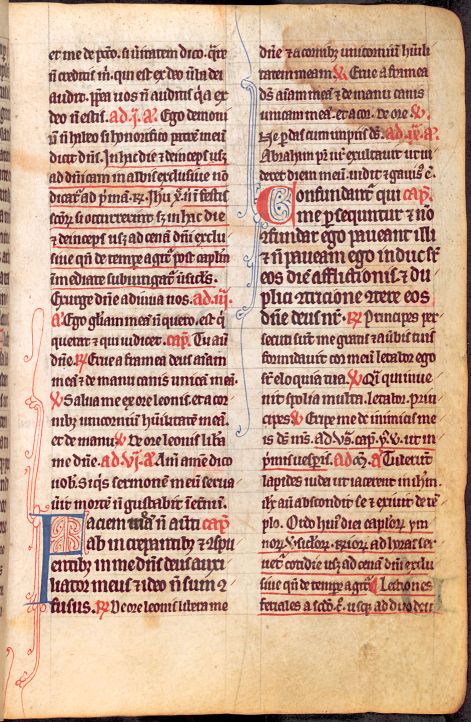 et me de pctō. si ūitatem dico. qͣre
nō creditis m̄. qui est ex deo ūba dei
audit. ppͭea uos nō auditis qͥa ex
deo nō estis. ad .ij. aͣ. Ego demoniū
nō habeo sed honorifico patrē meū
dicit dn̄s. In hac die et deinceps usqꝫ
ad dn̄icam in albis exclusiue nō
dicatͬ ad pͥmā. ℟. Ihū xp̄e. nͥ in festis
sctōꝝ si occurrerint sꝫ in hac die
et deinceps usqꝫ ad cenā dn̄i exclu
siue qn̄ de tempe agitͬ post capl̄m
īmediate subiungatͬ
Exurge dn̄e adiuua nos. ad .iij.
aͣ. Ego gl̄iam meā nō quero. est qͥ
querat et qui iudicet. cap̄. Tu aūt
dn̄e. ℟. Erue a framea deus aīam
meā et de manu canis unicā meā.
℣. Salua me ex ore leonis. et a cor
nibꝫ unicorniū hūilitatē meā.
et de manu ℣. De ore leonis liba
me dn̄e. ad .vj. aͣ. Amē amē dico
uob̄. siqͥs sermonē meū serua
ūit mortē nō gustabit ī etn̄um.
Faciem meā nō auti cap̄.
ab increpantibꝫ et ꝯspu
entibꝫ in me dn̄s deus auxi
liator meus et ideo nō sum ꝯ
fusus. ℟. De ore leonis libera me
dn̄e et a cornibꝫ unicorniū hūili
tatem meam. ℣. Erue a framea
ds̄ aīam meā et de manu canis
unicam meā. et a cor. de ore. ℣.
Ne pdas cum impiis ds̄. ad .ix. aͣ.
Abraham pr̄ ur̄ exultauit ut ui
deret diem meū. uidit et gauisꝰ ē.
Confundantͬ qui cap̄.
me psequntur et nō
ꝯfundar ego paueant illi
et nō paueam ego induc sͬ
eos diē afflictionis et du
plici ꝯtricione ꝯtere eos
dn̄e deus nr̄. ℟. Principes per
secuti sunt me gratis et a ūbis tuis
formidauit cor meū letabor ego
sͬ eloquia tua. ℣. Qͣi qui inue
nit spolia multa. letabor. prin
cipes ℣. Eripe me de inimicis me
is ds̄ ms̄. ad vs̄. cap̄. ẏ. ℣. ut in
pͥmis uespis. ad . aͣ. Tulerūt
lapides iudei ut iacerent in ihm̄.
ihc aūt abscondit se et exiuit de tē
plo. Ordo huiꝰ diei capl̄oꝝ ym
noꝝ ℣siculoꝝ. ad horas ser
uetͬ cotidie usqꝫ ad cenā dn̄i exclu
siue qn̄ de tempe agitͬ. Lectiones
feriales a scd̄o